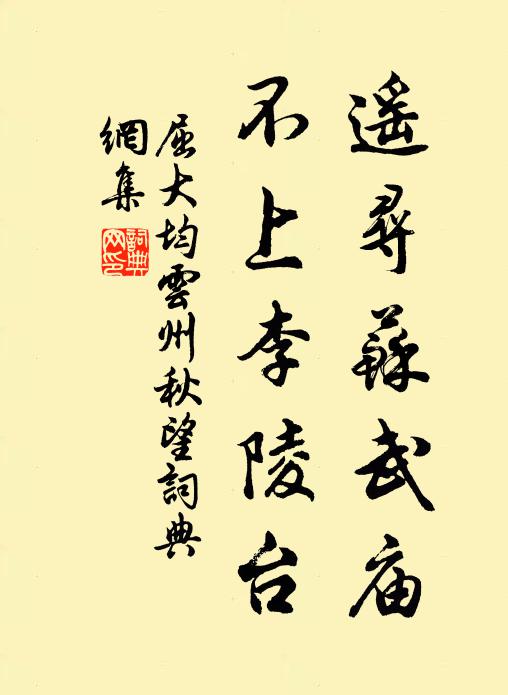 遥尋蘇武庙
不上李陵台
屈大均雲州秋望詞典
網集
詞典
网印